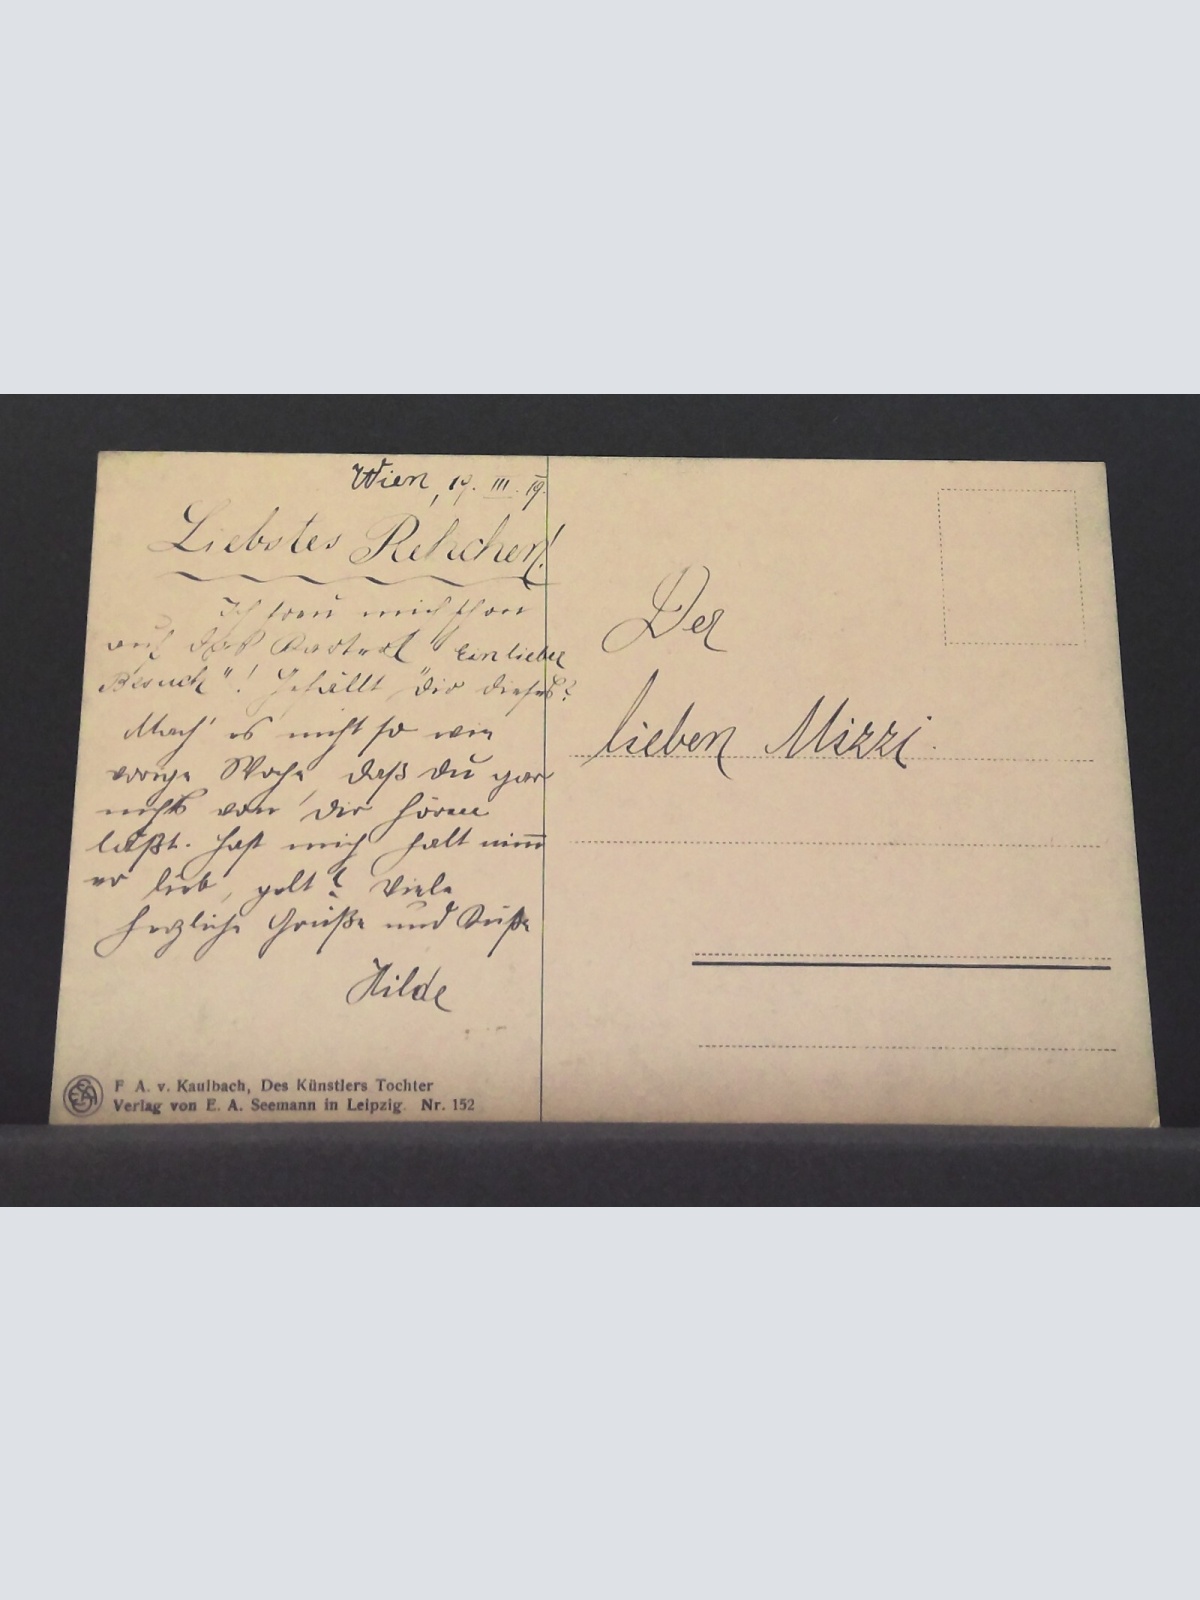 Wien, 19. III. 19.
Liebstes Rehchen!
Ich freu mich schon
auf das "Ein lieber
Besuch"! Gefällt dir dieses?
Mach' es nicht so wie
vorige Woche, daß du gar
nichts von dir hören
läßt. Hast mich halt nimm
er lieb, gelt? Viele
herzliche Grüße und Küße
Hilde
F. A. v. Kaulbach, Des Künstlers Tochter
Verlag von E. A. Seemann in Leipzig. Nr. 152
Der
lieben Mizzi.